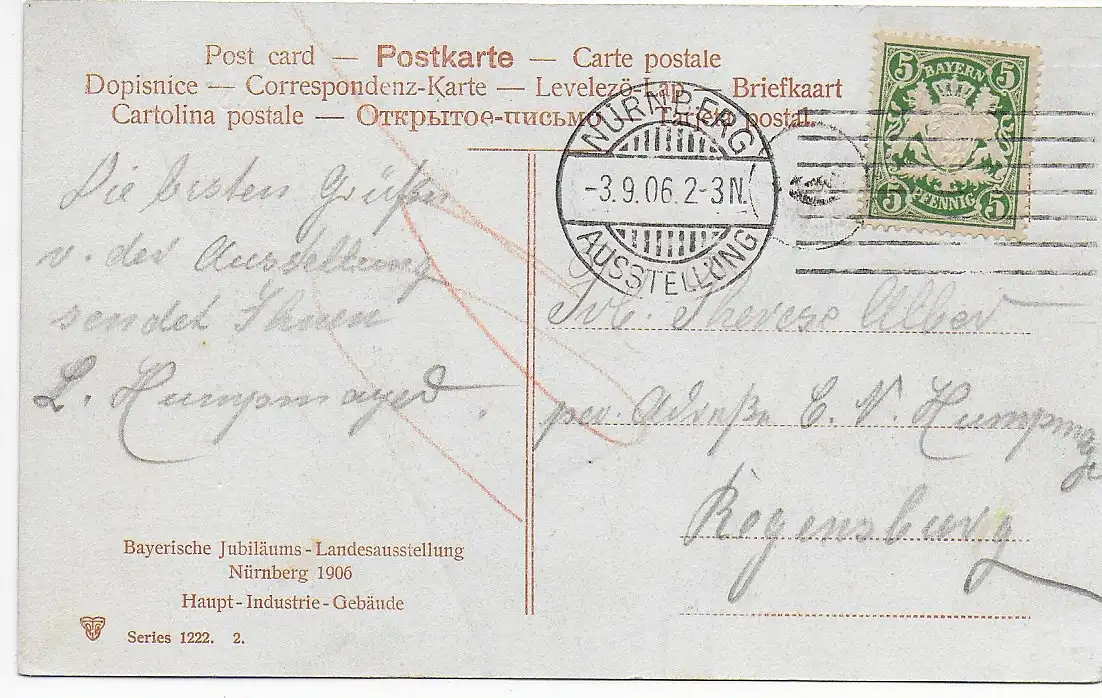 Post card — Postkarte — Carte postale
Dopisnice — Correspondenz-Karte — Levelező-Lap — Briefkaart
Cartolina postale — Открытое-письмо — Tarjeta postal.
BAYERN
5 5
5 5
PFENNIG
NÜRNBERG
-3.9.06.2-3N.
AUSSTELLUNG
Die besten Grüße
v. der Ausstellung
sendet Ihnen
L. Humpmayer.
Frl. Therese Alber
per. Adreße C. V. Humpmay
Regensburg
Bayerische Jubiläums-Landesausstellung
Nürnberg 1906
Haupt-Industrie-Gebäude
Series 1222. 2.